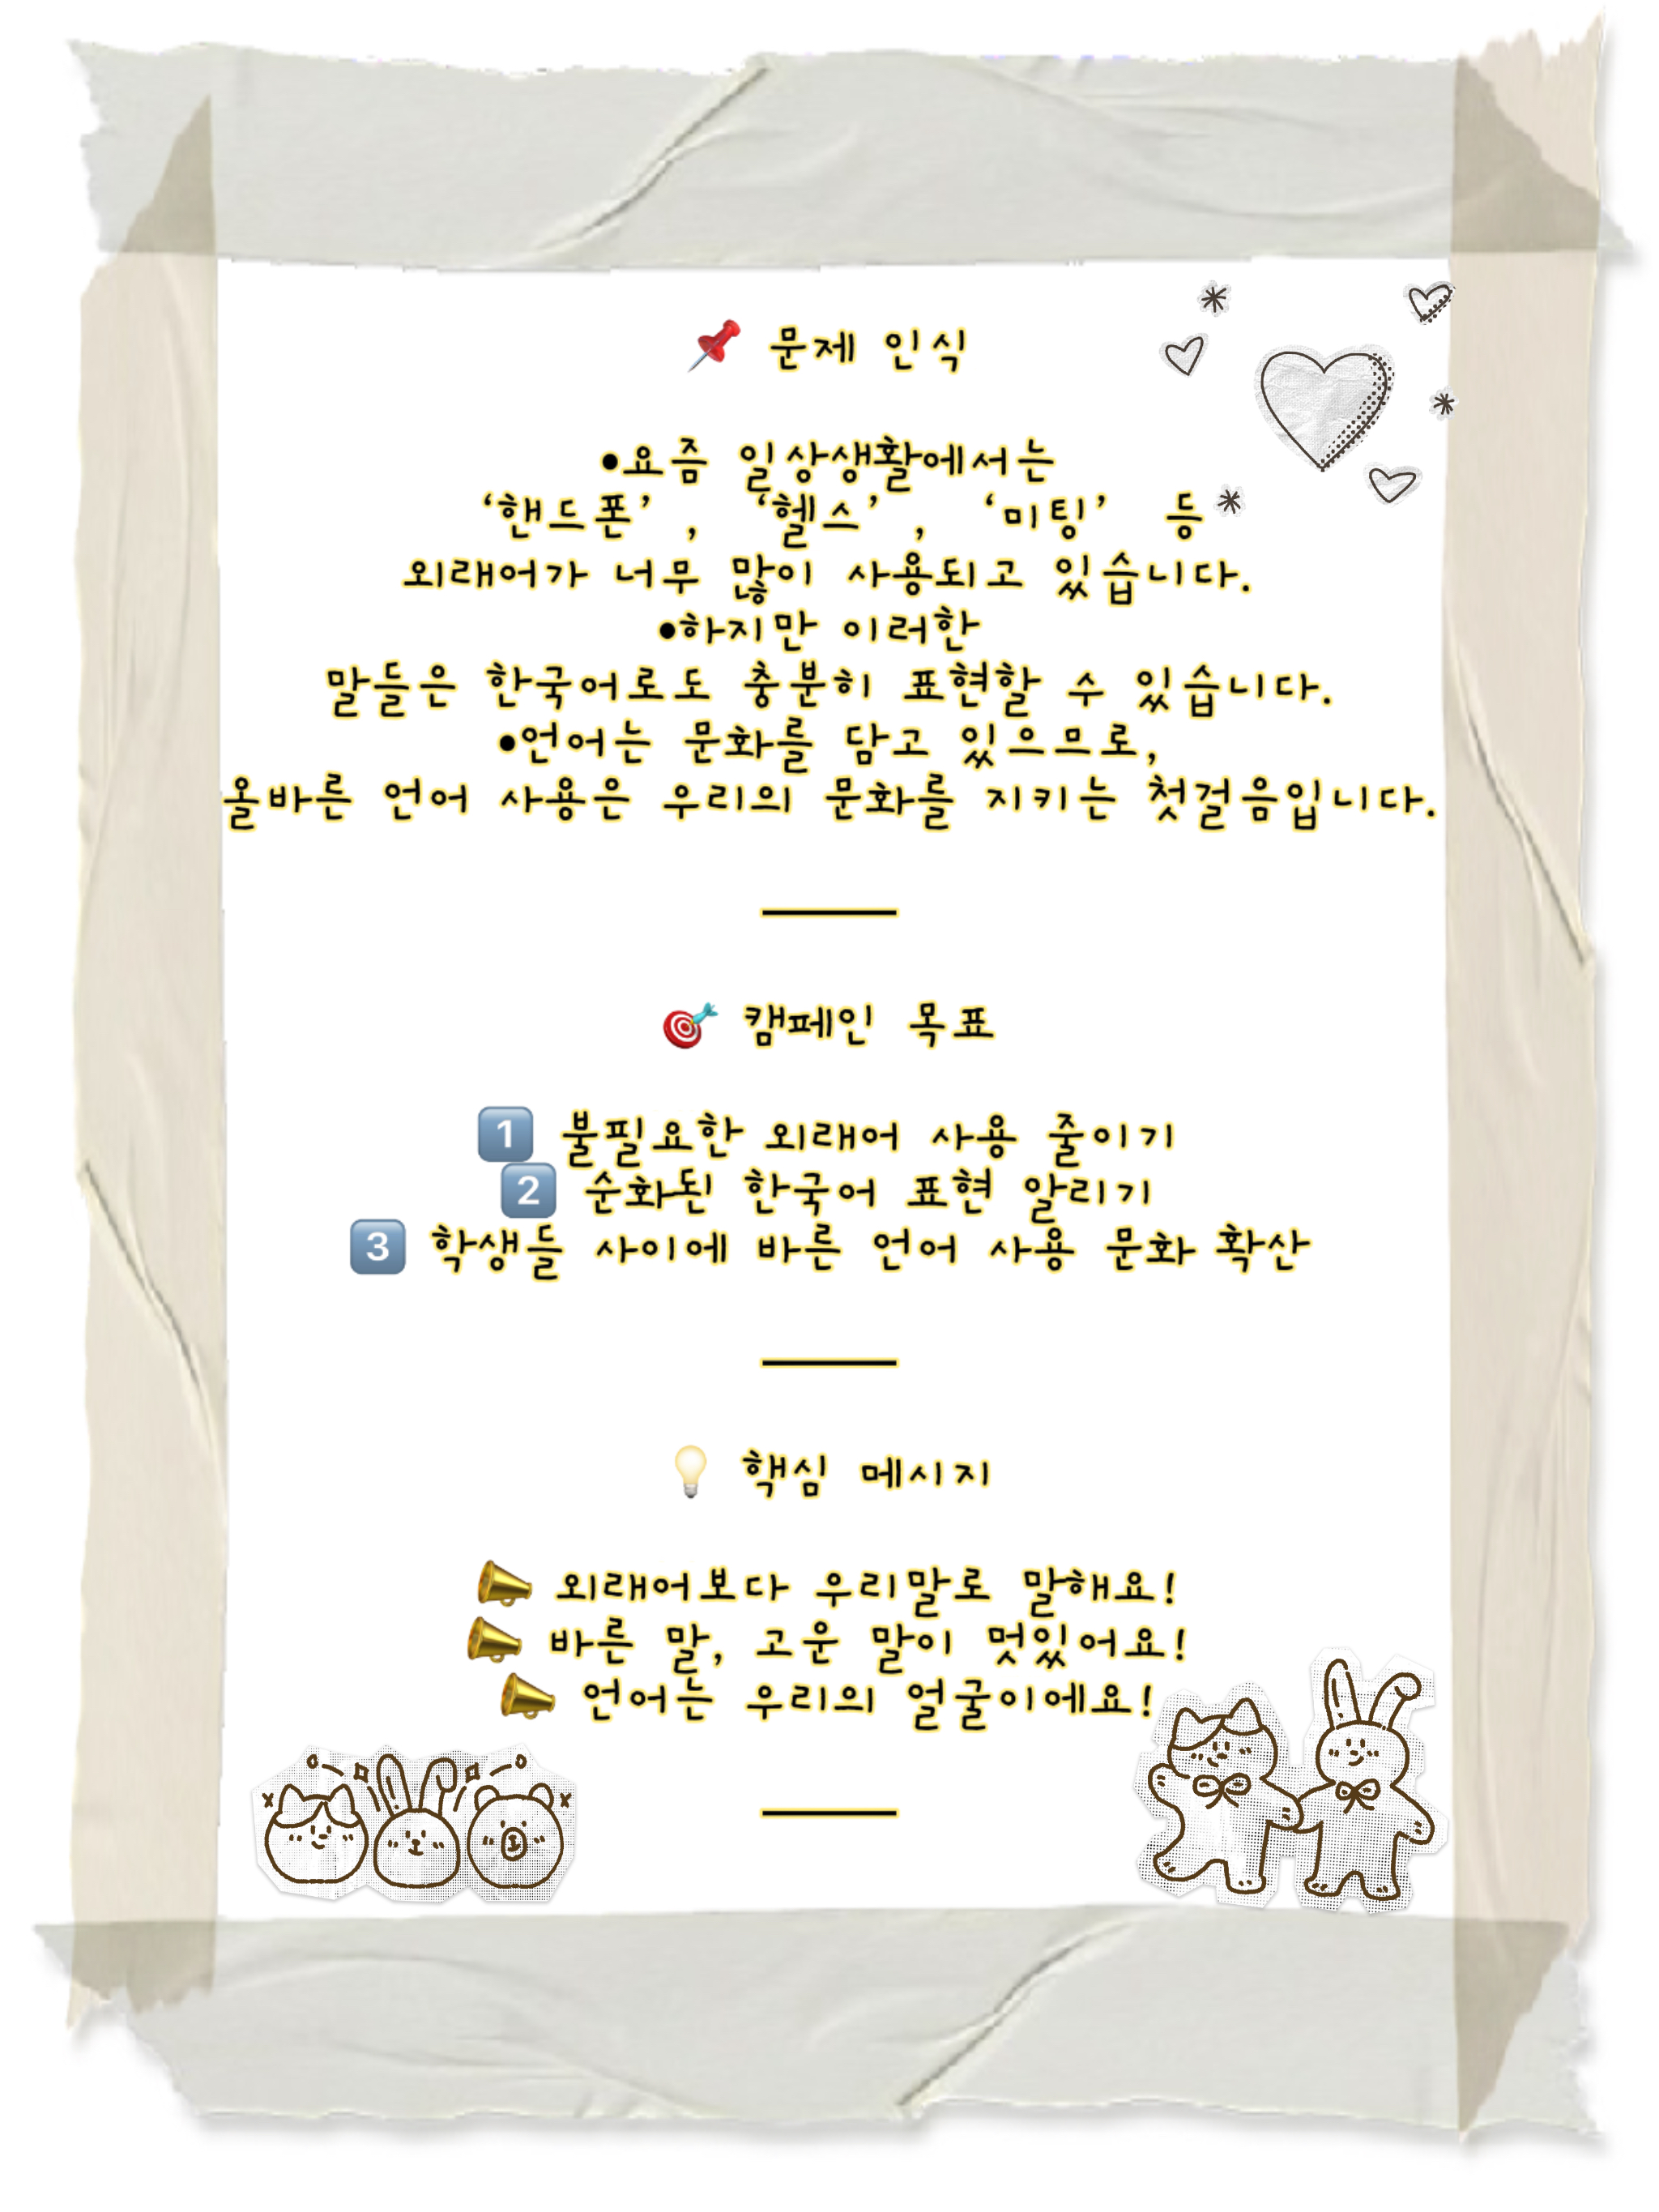 📌 문제 인식
•요즘 일상생활에서는
‘핸드폰’, ‘헬스’, ‘미팅’ 등
외래어가 너무 많이 사용되고 있습니다.
•하지만 이러한
말들은 한국어로도 충분히 표현할 수 있습니다.
•언어는 문화를 담고 있으므로,
올바른 언어 사용은 우리의 문화를 지키는 첫걸음입니다.
🎯 캠페인 목표
1️⃣ 불필요한 외래어 사용 줄이기
2️⃣ 순화된 한국어 표현 알리기
3️⃣ 학생들 사이에 바른 언어 사용 문화 확산
💡 핵심 메시지
📣 외래어보다 우리말로 말해요!
📣 바른 말, 고운 말이 멋있어요!
📣 언어는 우리의 얼굴이에요!